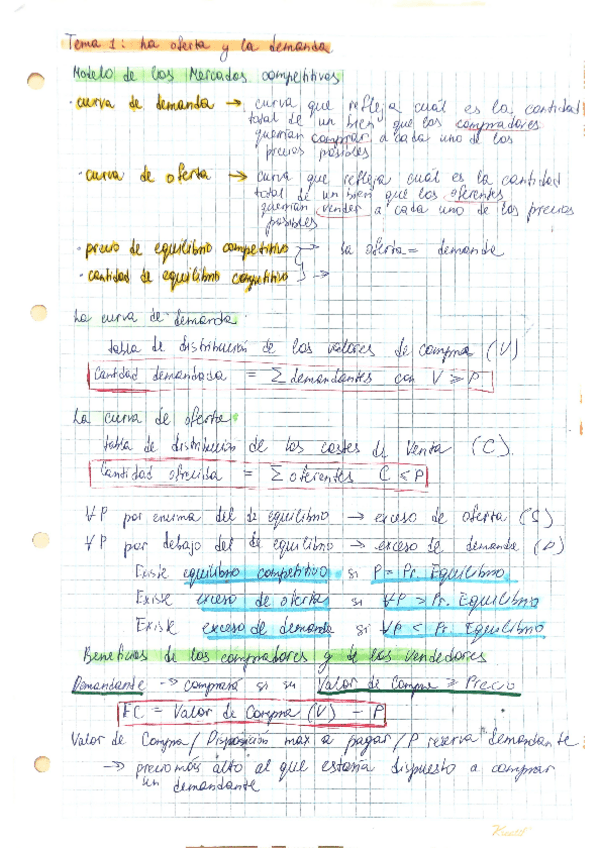 Tema 1: La oferta y la demanda
Modelo de los Mercados competitivos
· curva de demanda → curva que refleja cuál es la cantidad
total de un bien que los compradores
querrían comprar a cada uno de los
precios posibles
· curva de oferta → curva que refleja cuál es la cantidad
total de un bien que los oferentes
querrían vender a cada uno de los precios
posibles
· precio de equilibrio competitivo → la oferta = demanda
· cantidad de equilibrio competitivo →
La curva de demanda
tabla de distribución de los valores de compra (V)
Cantidad demandada = Σ demandantes con V ≥ P
La curva de oferta
tabla de distribución de los costes de Venta (C).
Cantidad ofrecida = Σ oferentes C ≤ P
∀P por encima del de equilibrio → exceso de oferta (S)
∀P por debajo del de equilibrio → exceso de demanda (D)
Existe equilibrio competitivo si P = Pr. Equilibrio
Existe exceso de ofertas si ∀P > Pr. Equilibrio
Existe exceso de demanda si ∀P < Pr. Equilibrio
Beneficios de los compradores y de los vendedores
Demandante → comprará si su Valor de Compra ≥ Precio
EC = Valor de Compra (V) - P
Valor de Compra / Disposición max a pagar / P reserva demandante
→ precio más alto al que estaría dispuesto a comprar
un demandante